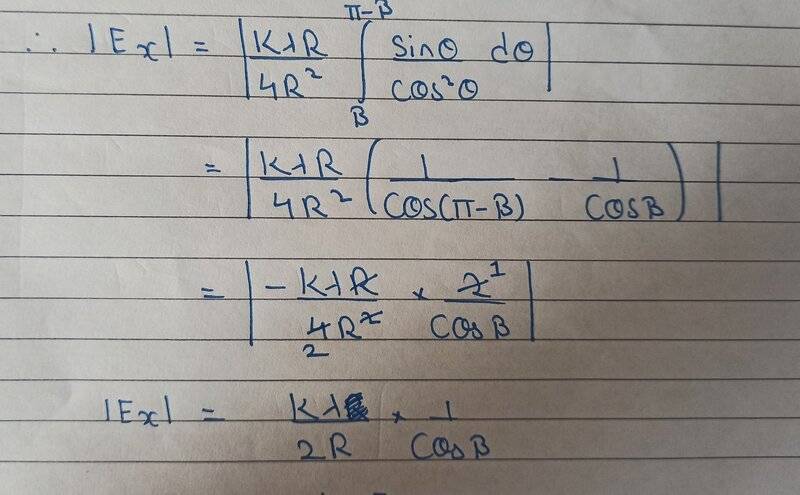 ∴ |Ex| = | KλR/4R² ∫_B^{π-B} sinθ/cos²θ dθ |
= | KλR/4R² ( 1/COS(π-B) - 1/COSB ) |
= | - KλR/4R² 2 × 2 1/COSB |
|Ex| = Kλ/2R × 1/COSB